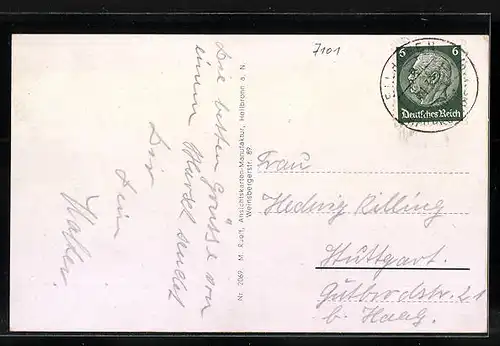 7101
6 6
Deutsches Reich
Die besten Grüsse von
einem Marsch sendet
Dir
Dein
Nr. 2969. M. Rust, Ansichtskarten-Manufaktur, Heilbronn a. N.
Weinsbergerstr. 89.
Frau
Hedwig Killing
Stuttgart.
Gutbrodstr. 21
b. Haag.